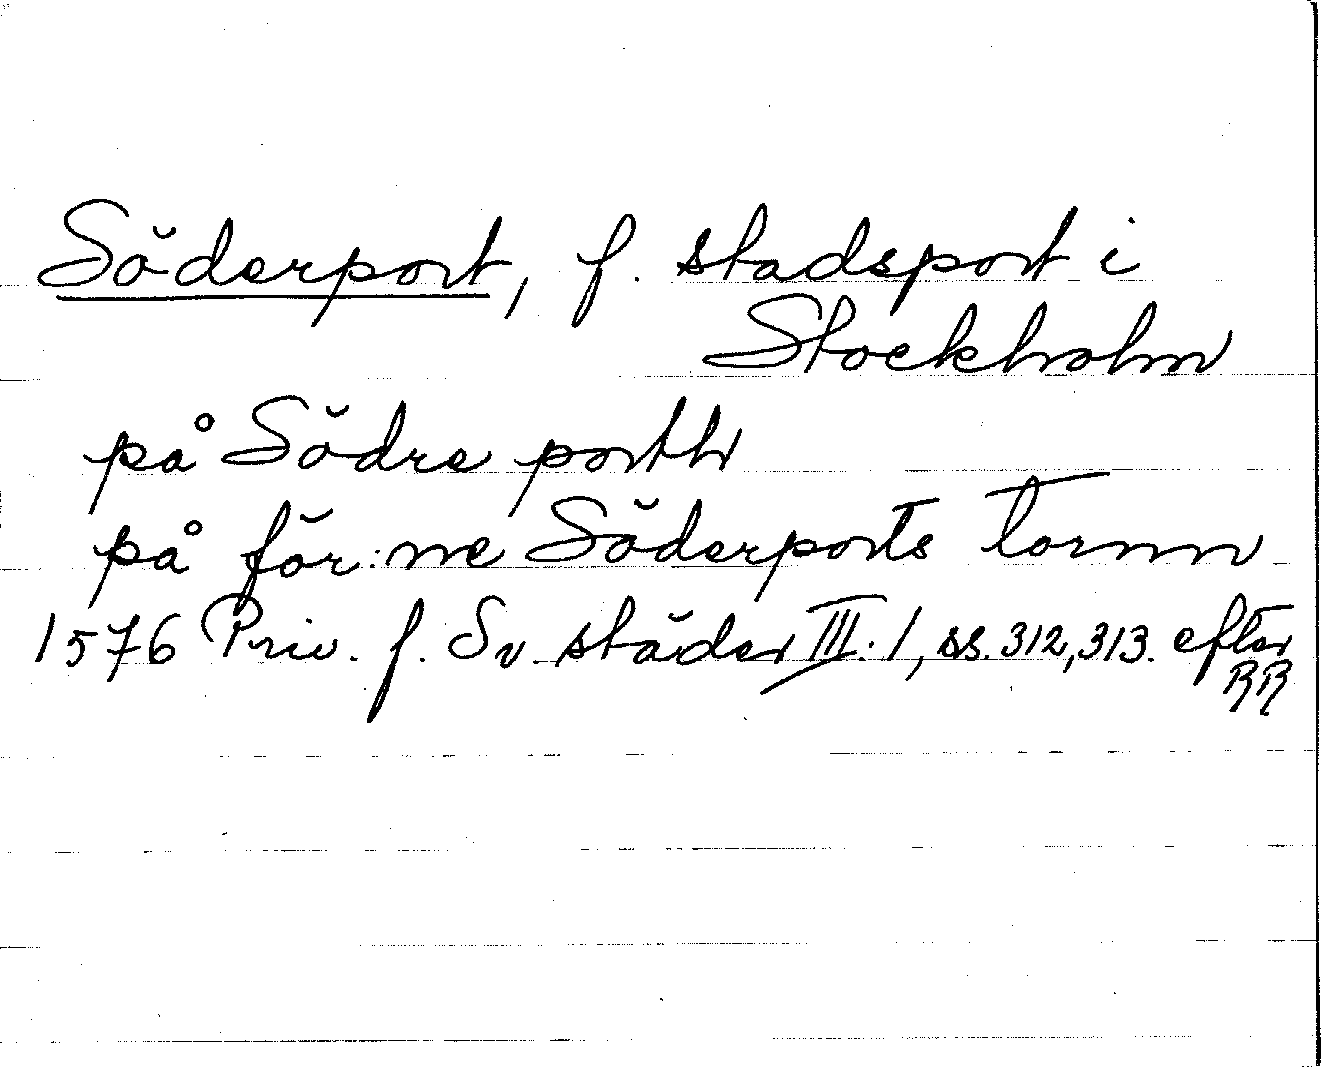 Söderport, f. stadsport i
Stockholm
på Södre portt
på för:ne Söderports tornn
1576 Priv. f. Sv städer III:1, ss. 312, 313. efter
RR